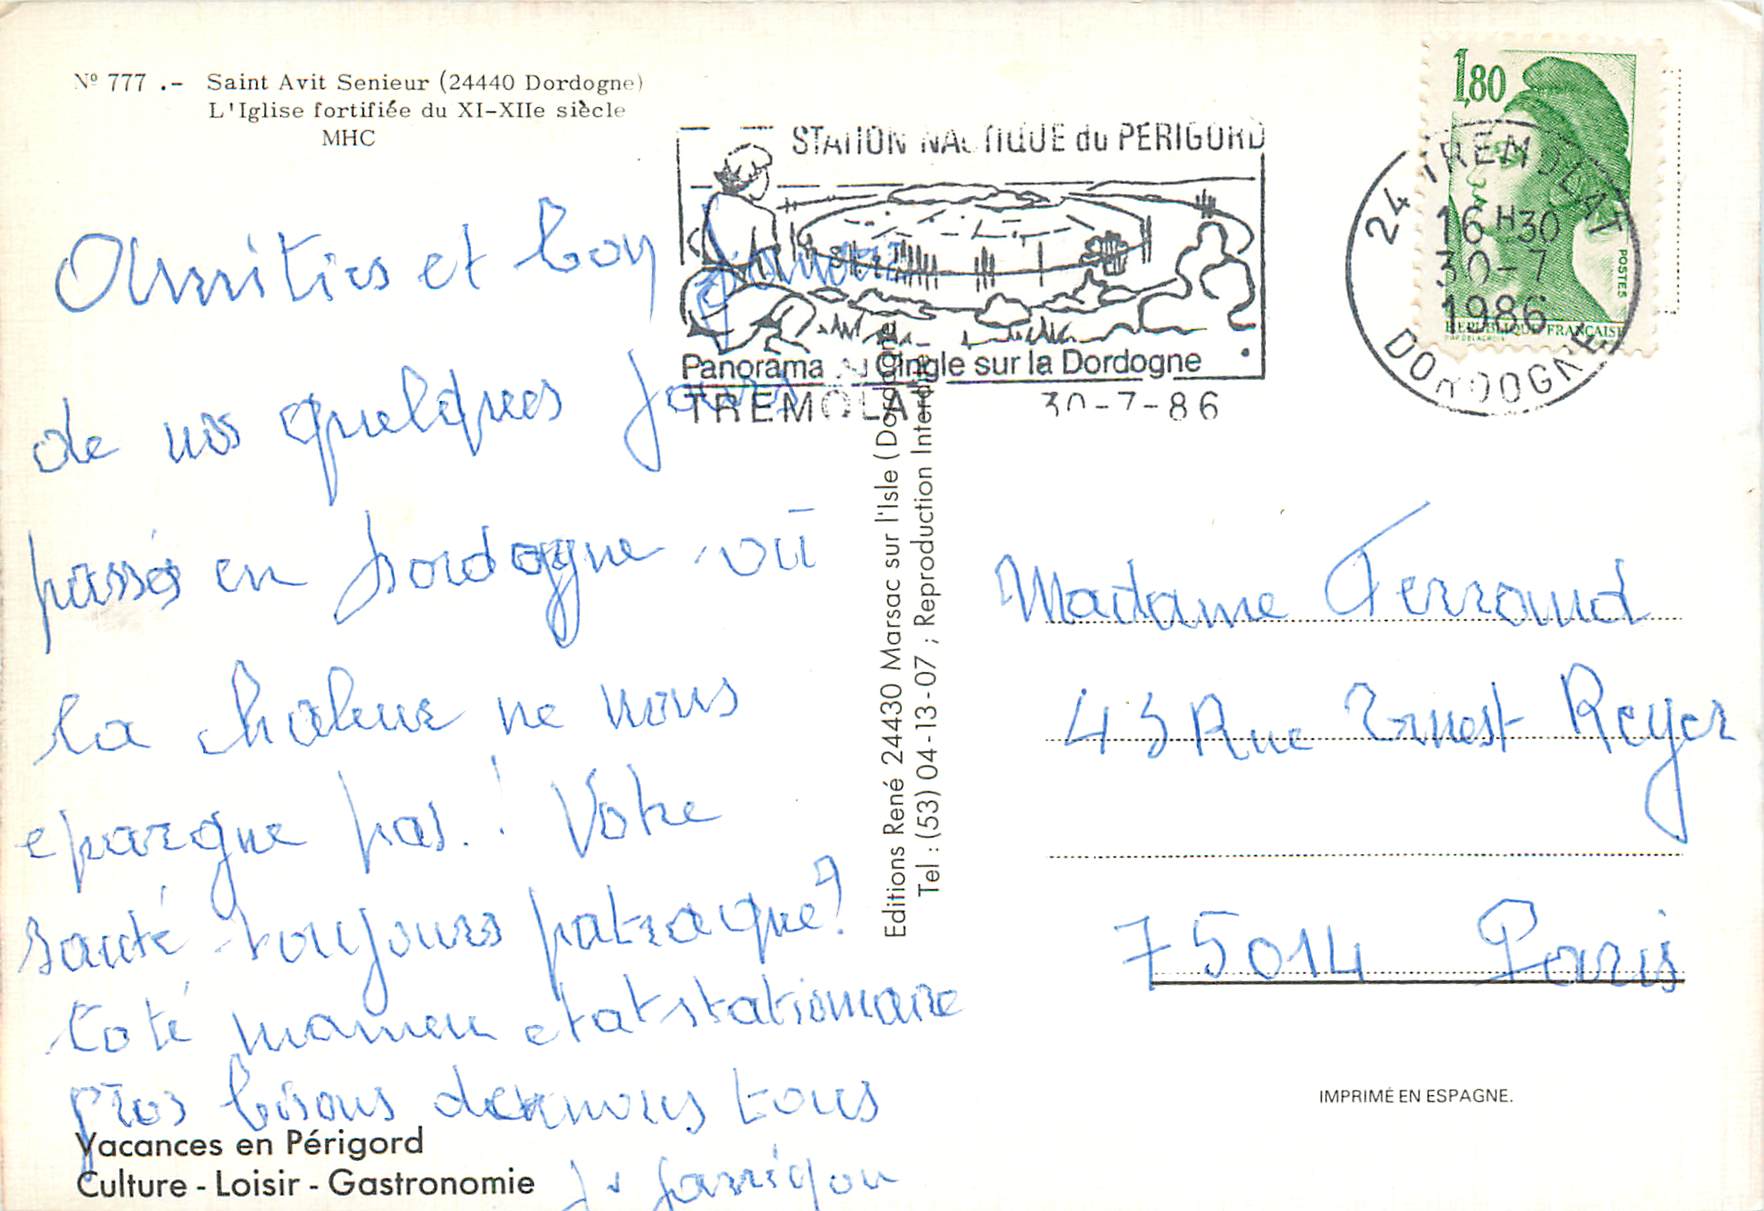 Nº 777 .- Saint Avit Senieur (24440 Dordogne)
L'Iglise fortifiée du XI-XIIe siècle
MHC
Amitiés et bon
de nos quelques jours
passés en Dordogne où
la chaleur ne nous
epargne pas! Votre
santé toujours patraque?
Coté maman etat stationnaire
gros bisous de nous tous
Vacances en Périgord
Culture - Loisir - Gastronomie
STATION NAUTIQUE du PÉRIGORD
Panorama du Cingle sur la Dordogne
TREMOLAT 30-7-86
Editions René 24430 Marsac sur l'Isle (Dordogne
Tel : (53) 04-13-07 ; Reproduction Interdite
1,80
POSTES
REPUBLIQUE FRANÇAISE
24 TREMOLAT
16 H30
30-7
1986
DORDOGNE
Madame Ferraud
43 Rue Ernest Reyer
75014 Paris
IMPRIMÉ EN ESPAGNE.